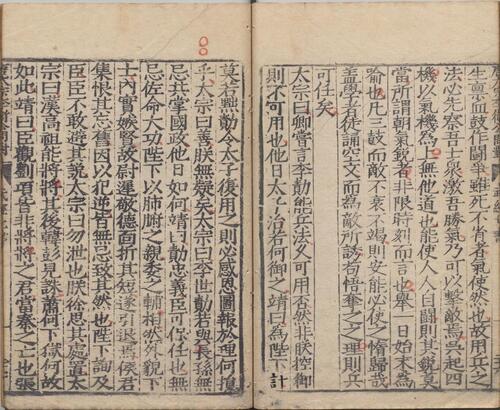 生稟血鼓作鬪爭雖死不省者氣使然也故用兵之
法必先察吾士衆激吾勝氣乃可以擊敵焉吳起四
機以氣機爲上無他道也能使人人自鬪則其銳莫
當所謂朝氣銳者非限時刻而言也舉一日始末爲
喻也凡三鼓而敵不衰不竭則安能必使之惰歸哉
盖學者徒誦空文而爲敵所誘苟悟奪之之理則兵
可任矣
太宗曰卿嘗言李勣能兵法久可用否然非朕控御
則不可用也他日太子治若何御之靖曰爲陛下計
莫若黜勣令太子復用之則必感恩圖報於理何損
乎太宗曰善朕無疑矣太宗曰李世勣若與長孫無
忌共掌國政他日如何靖曰勣忠義臣可保任也無
忌佐命大功陛下以肺腑之親委之輔相然外貌下
士內實嫉賢故尉遲敬德面折其短遂引退焉侯君
集恨其忘舊因以犯逆皆無忌致其然也陛下詢及
臣臣不敢避其說太宗曰勿泄也朕徐思其處置太
宗曰漢高祖能將將其後韓彭見誅蕭何下獄何故
如此靖曰臣觀劉項皆非將將之君當秦之亡也張